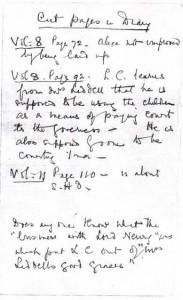 Cut pages in Diary
Vol. 8 Page 72. Alice not improved
by being laid up
Vol. 8. Page 92. L.C. learns
from Mrs Liddell that he is
supposed to be using the children
as a means of paying court
to the Governess – He is
also supposed soon to be
courting Ina –
Vol – 11 Page 110 – is about
Does any one know what the
"business with Lord Newry" was
which put L.C. out of "Mrs
Liddell's Good Graces"